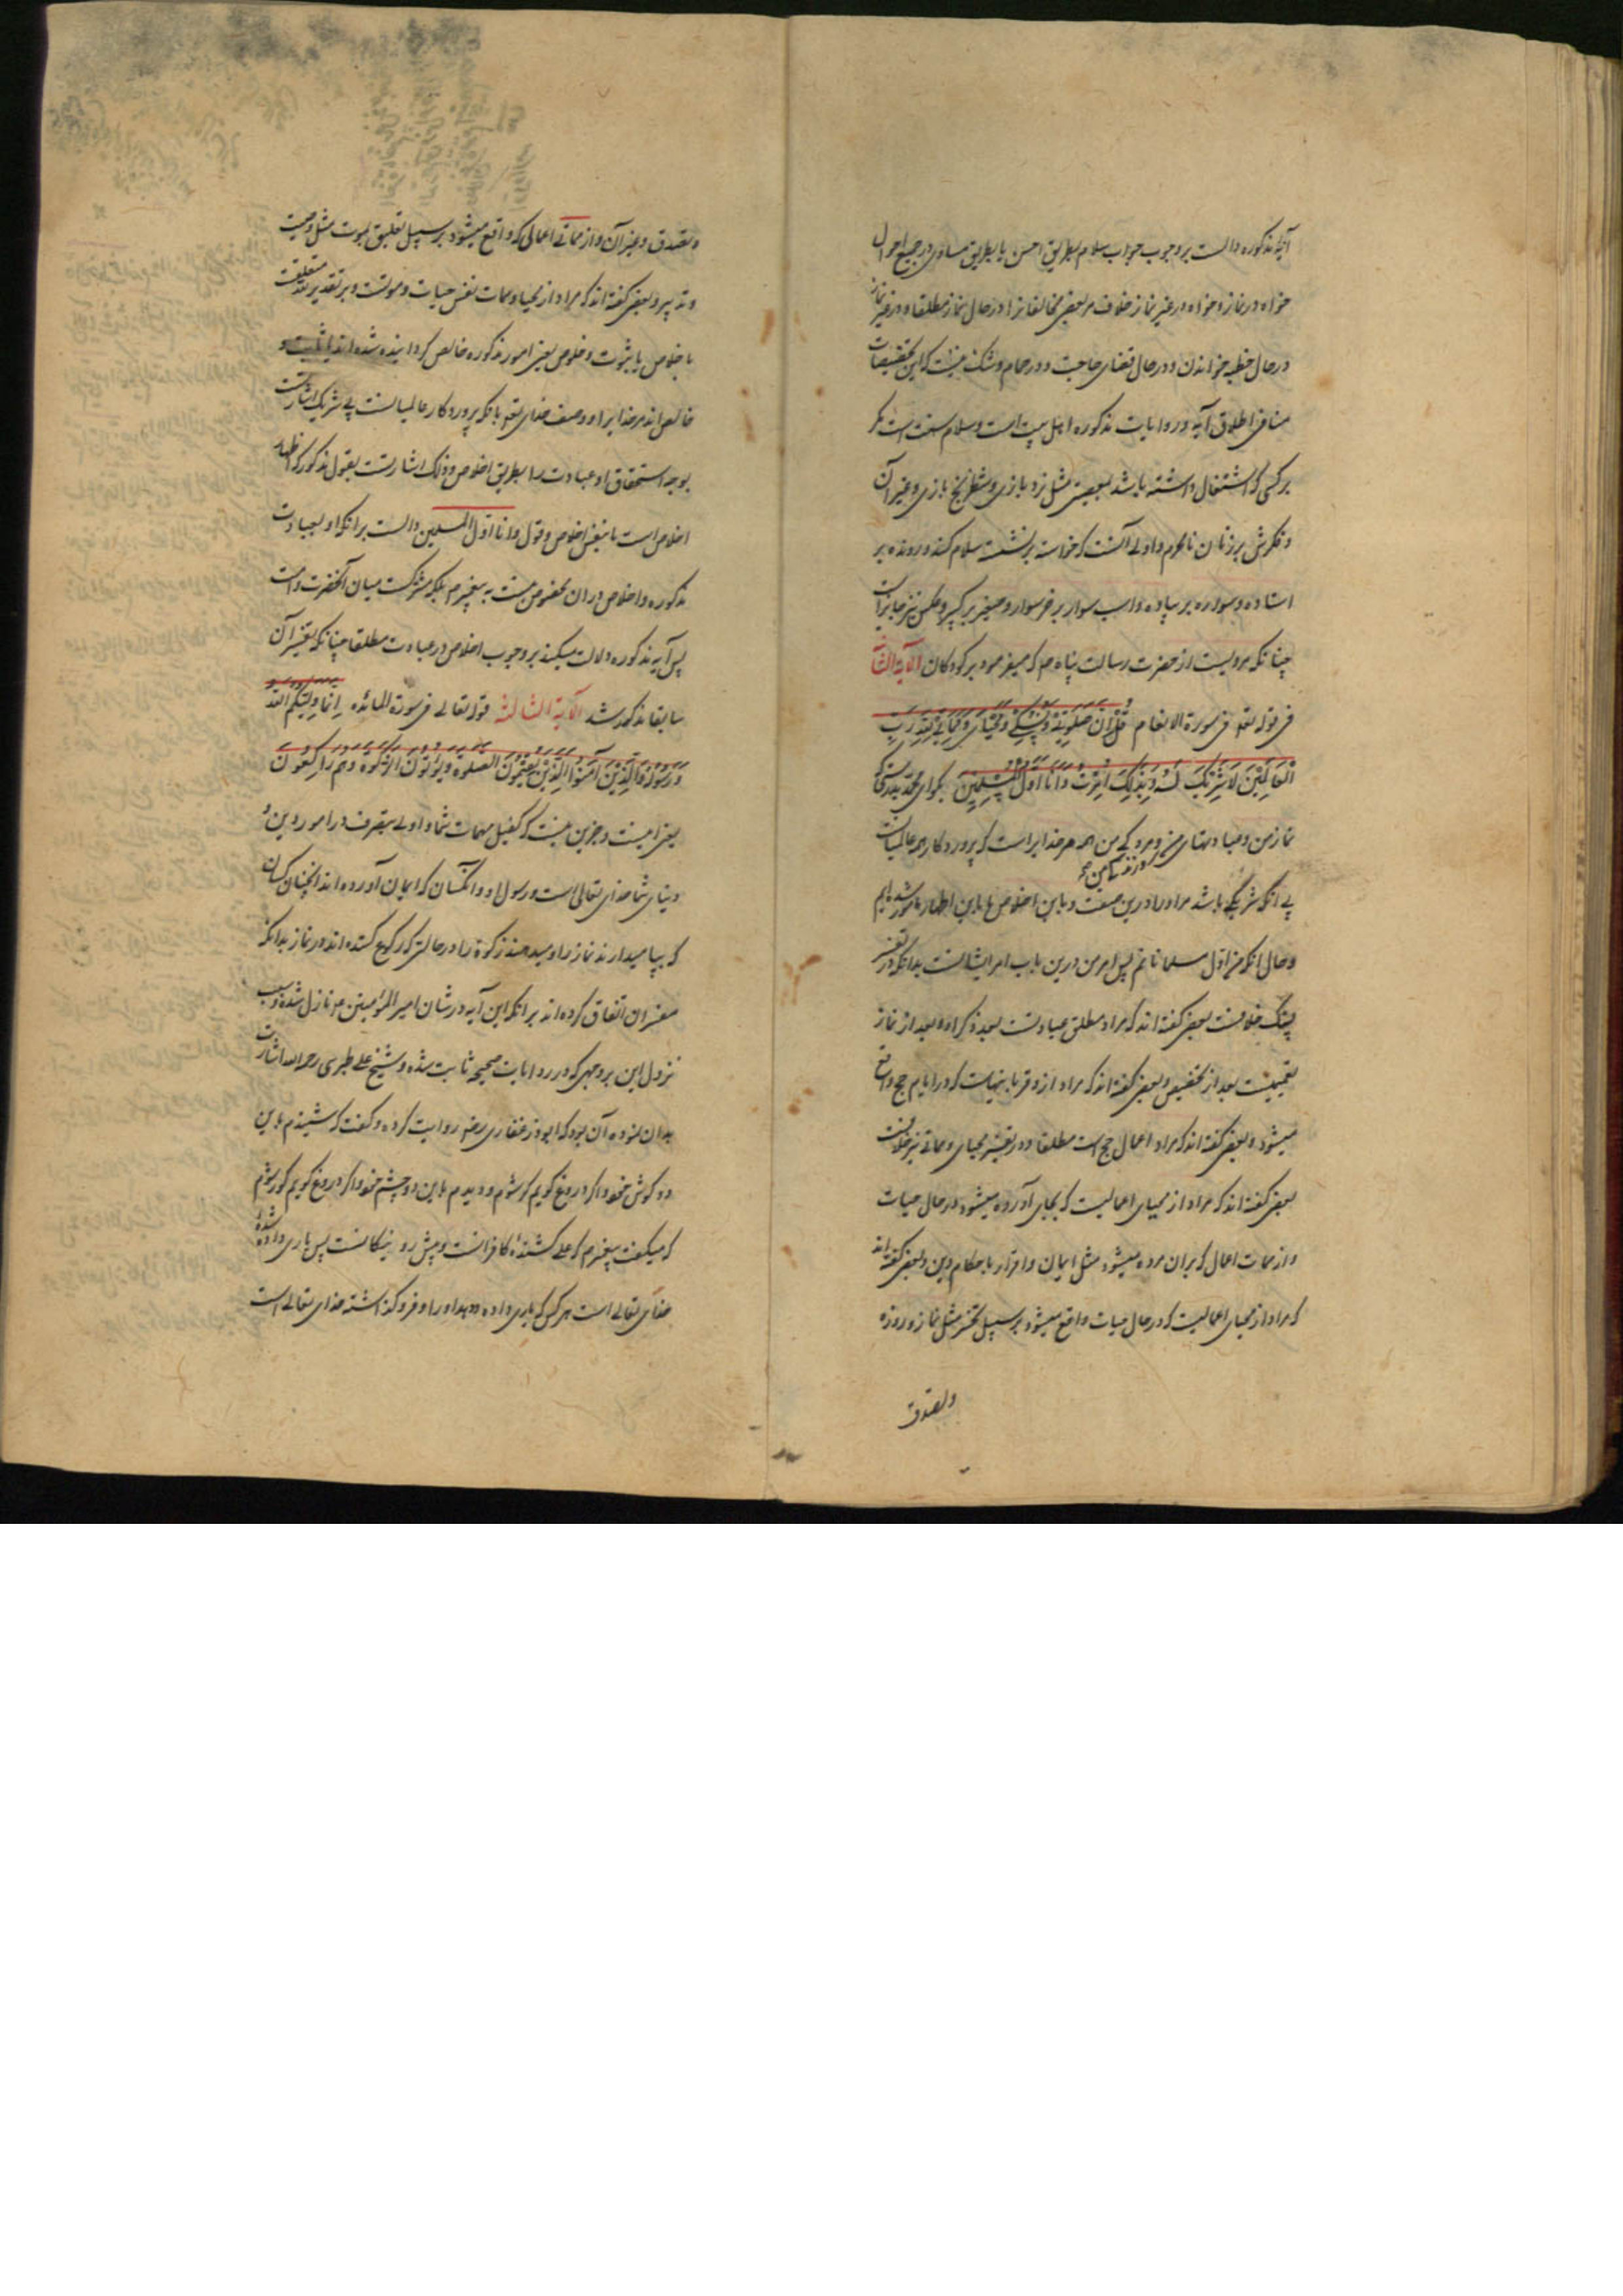 آیه مذکوره دالست بر وجوب جواب سلام بطریق احسن یا بطریق مساوی در جمیع احوال
خواه در نماز و خواه در غیر نماز خلاف مر بعضی مخالفانرا در حال نماز مطلقا و در غیر نماز
در حال خطبه خواندن و در حال قضای حاجت و در حمام و شک نیست که این تخصیصات
منافی اطلاق آیه و روایات مذکوره اهل بیت است و سلام سنت است مگر
بر کسی که اشتغال داشته باشد بمعصیتی مثل نرد بازی و شطرنج بازی و غیر آن
و مکرش بر زنان نامحرم و اولی آنست که خواسته بر نشسته سلام کند و رونده بر
استاده و سواره بر پیاده و اسب سوار بر خر سوار و صغیر بر کبیر و عکس نیز جایز است
چنانکه مرویست از حضرت رسالت پناه صم که میفرمود بر کودکان الآیة الثا
فی قوله تعه فی سورة الانعام قُلْ اِنَّ صَلوتِی وَنُسُکِی وَمَحْیَایَ وَمَمَاتِی لِلّهِ رَبِّ
الْعَالَمِینَ لَا شَرِیکَ لَهُ وَبِذلِکَ اُمِرْتُ وَاَنَا اَوَّلُ الْمُسْلِمِینَ بگو ای محمد بدرستی که
نماز من و عبادتهای من و مردگی من همه مر خدایراست که پروردگار همه عالمیانست
و زندگی من
بی انکه شریکی باشد مر او را درین صفت و باین اخلاص یا باین اظهار مامور شده‌ایم
و حال انکه من اول مسلمانانم پس امر من درین باب امر ایشانست بدانکه در تفسیر
نسک خلافست بعضی گفته‌اند که مراد مطلق عبادتست بعد ذکر او بعد از نماز
تعمیمست بعد از تخصیص و بعضی گفته‌اند که مراد از و قربانیهاست که در ایام حج واقع
میشود و بعضی گفته‌اند که مراد اعمال حج است مطلقا و در تفسیر محیای و مماتی نیز خلافست
بعضی گفته‌اند که مراد از محیای اعمالیست که بجای آورده میشود در حال حیات
و از ممات اعمال که بران مرده میشود مثل ایمان و اقرار باحکام دین و بعضی گفته‌اند
که مراد از محیای اعمالیست که در حال حیات واقع میشود بر سبیل تنجیز مثل نماز و روزه
و تصدق
و تصدق و غیر آن و از مماتی اعمالی که واقع میشود بر سبیل تعلیق بموت مثل وصیت
و تدبیر و بعضی گفته‌اند که مراد از محیا و ممات نفس حیات و موتست و بر تقدیر متعلقست
باخلاص یا بثبوت و خلوص یعنی امور مذکوره خالص گردانیده شده‌اند یا ثابت و
خالص‌اند مر خدایرا و وصف خدای تعه بانکه پروردگار عالمیانست بی شریک اشارتست
بوجه استحقاق او عبادت را بطریق اخلاص و ذلک اشارتست بقول مذکور که اظهار
اخلاص است یا بنفس اخلاص و قول و انا اول المسلمین دالست بر انکه او بعبادت
مذکوره و اخلاص در ان مخصوص نیست به پیغمبر صم بلکه مشترکست میان آنحضرت و امت
پس آیه مذکوره دلالت میکند بر وجوب اخلاص در عبادت مطلقا چنانکه تفسیر آن
سابقا مذکور شد الآیة الثالثة قوله تعالی فی سورة المائده اِنَّمَا وَلِیُّکُمُ اللّهُ
وَرَسُولُهُ وَالَّذِینَ آمَنُوا الَّذِینَ یُقِیمُونَ الصَّلوةَ وَیُؤتُونَ الزَّکوةَ وَهُمْ رَاکِعُونَ
یعنی نیست و جز این نیست که کفیل مهمات شما و اولی بتصرف در امور دین و
دنیای شما خدای تعالی است و رسول او و آنکسان که ایمان آورده‌اند انچنان کسان
که بپا میدارند نماز را و میدهند زکوة را در حالتی که رکوع کننده‌اند در نماز بدانکه
مفسران اتفاق کرده‌اند بر انکه این آیه در شان امیر المؤمنین ع م نازل شده و سبب
نزول این بر وجهی که در روایات صحیحه ثابت شده و شیخ علی طبرسی رحمه الله اشارت
بدان نموده آن بود که ابوذر غفاری رضه روایت کرده و گفت که شنیدم باین
دو گوش خود و اگر دروغ گویم کر شوم و دیدم باین دو چشم خود و اگر دروغ گویم کور شوم
که میگفت پیغمبر صم که علی کشنده کافرانست و پیش رو نیکانست پس یاری داده شده
خدای تعالی است هر کس که یاری داده دهد او را و فروگذاشته خدای تعالی است